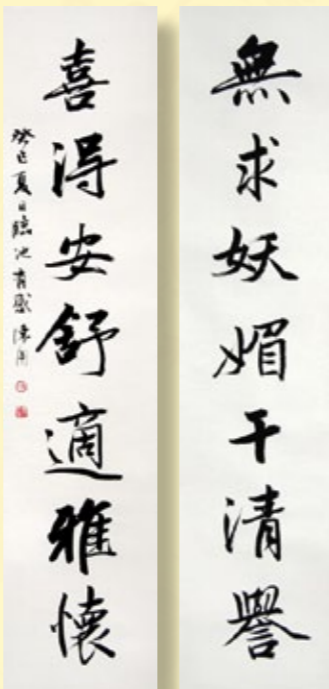 無求妖媚干清譽
喜得安舒適雅懷
癸巳夏日臨池有感